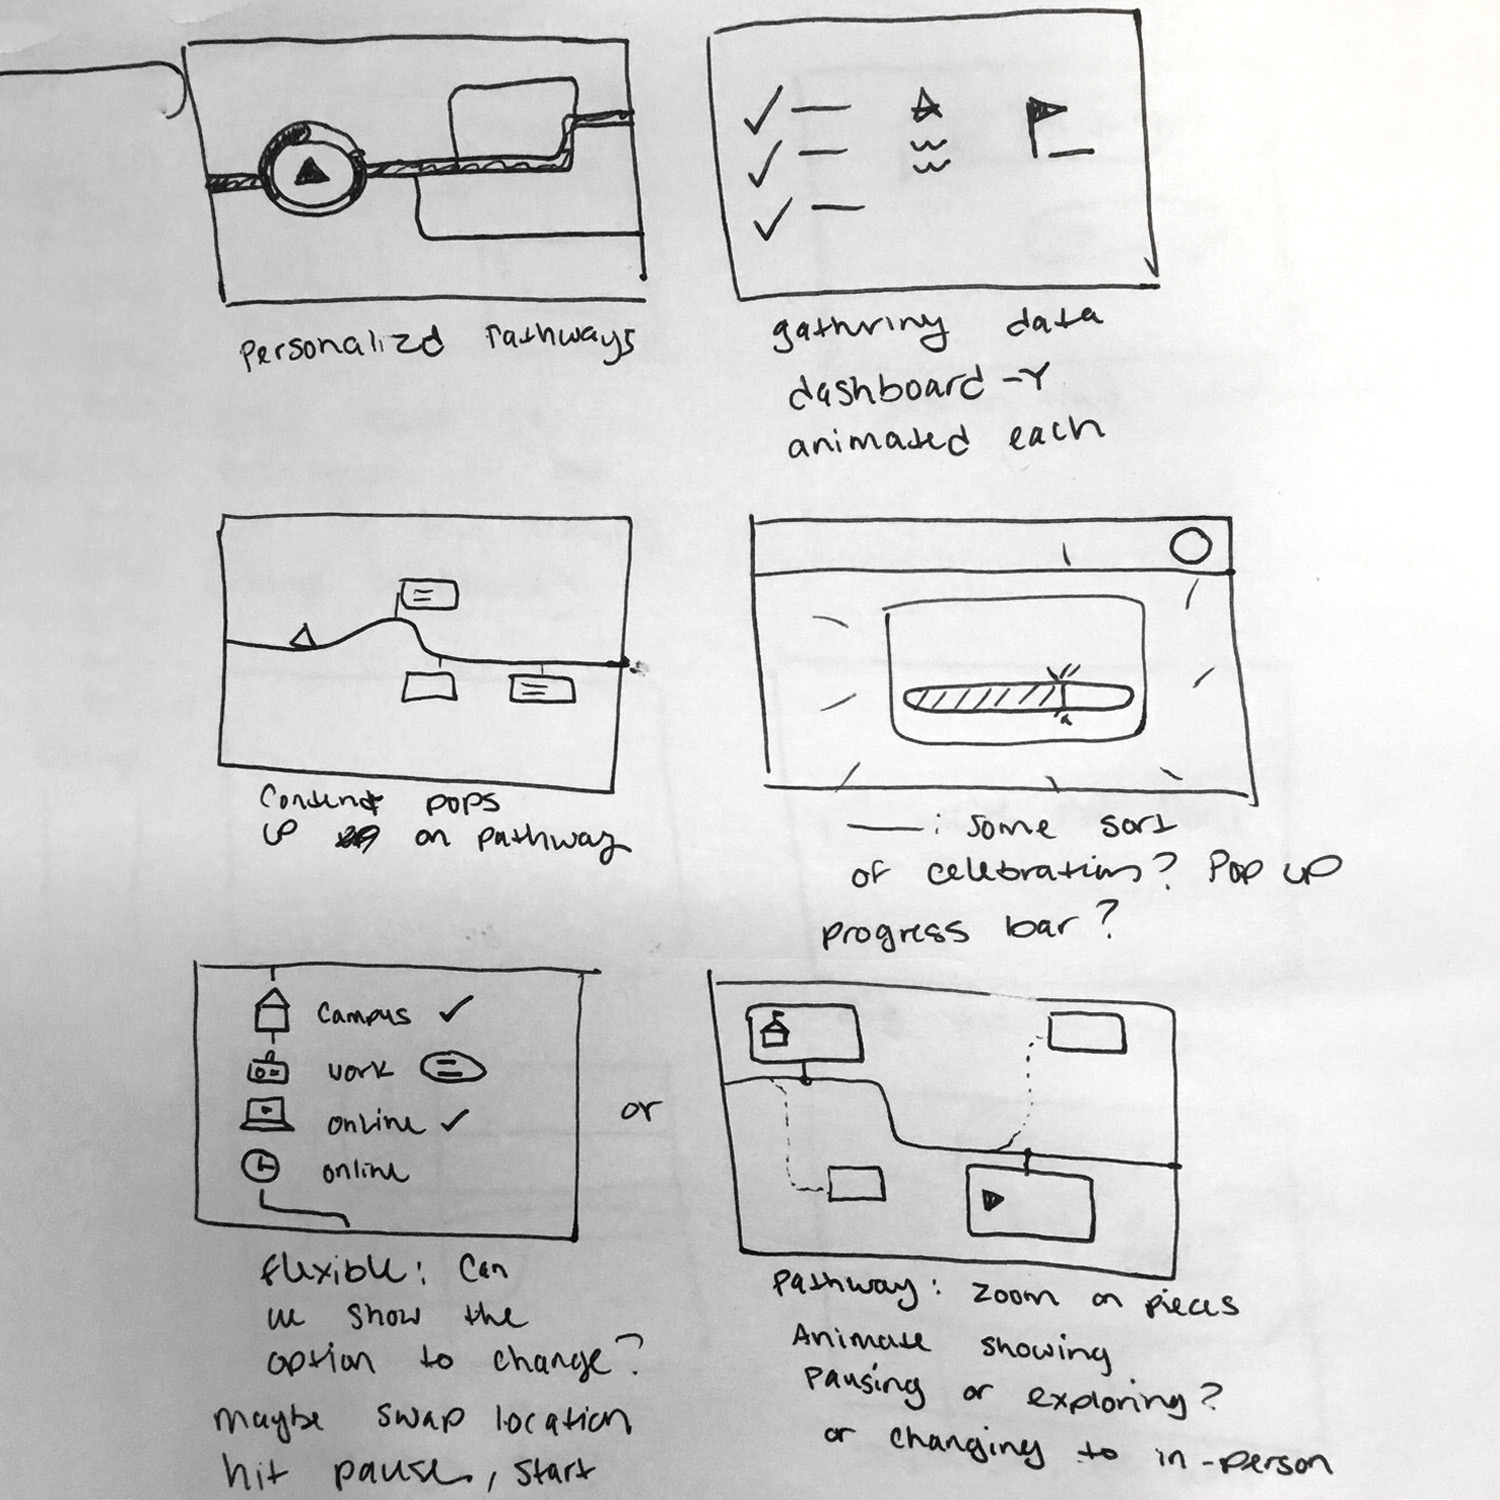 Personalizd Pathways
gathring data
dashboard -Y
animated each
Content pops
up on pathway
: Some sort
of celebration? Pop up
progress bar?
Campus ✓
work
online ✓
online
or
flexible: Can
we show the
option to change?
maybe swap location
hit pause, start
Pathway: zoom on pieces
Animate showing
Pausing or exploring?
or changing to in-person